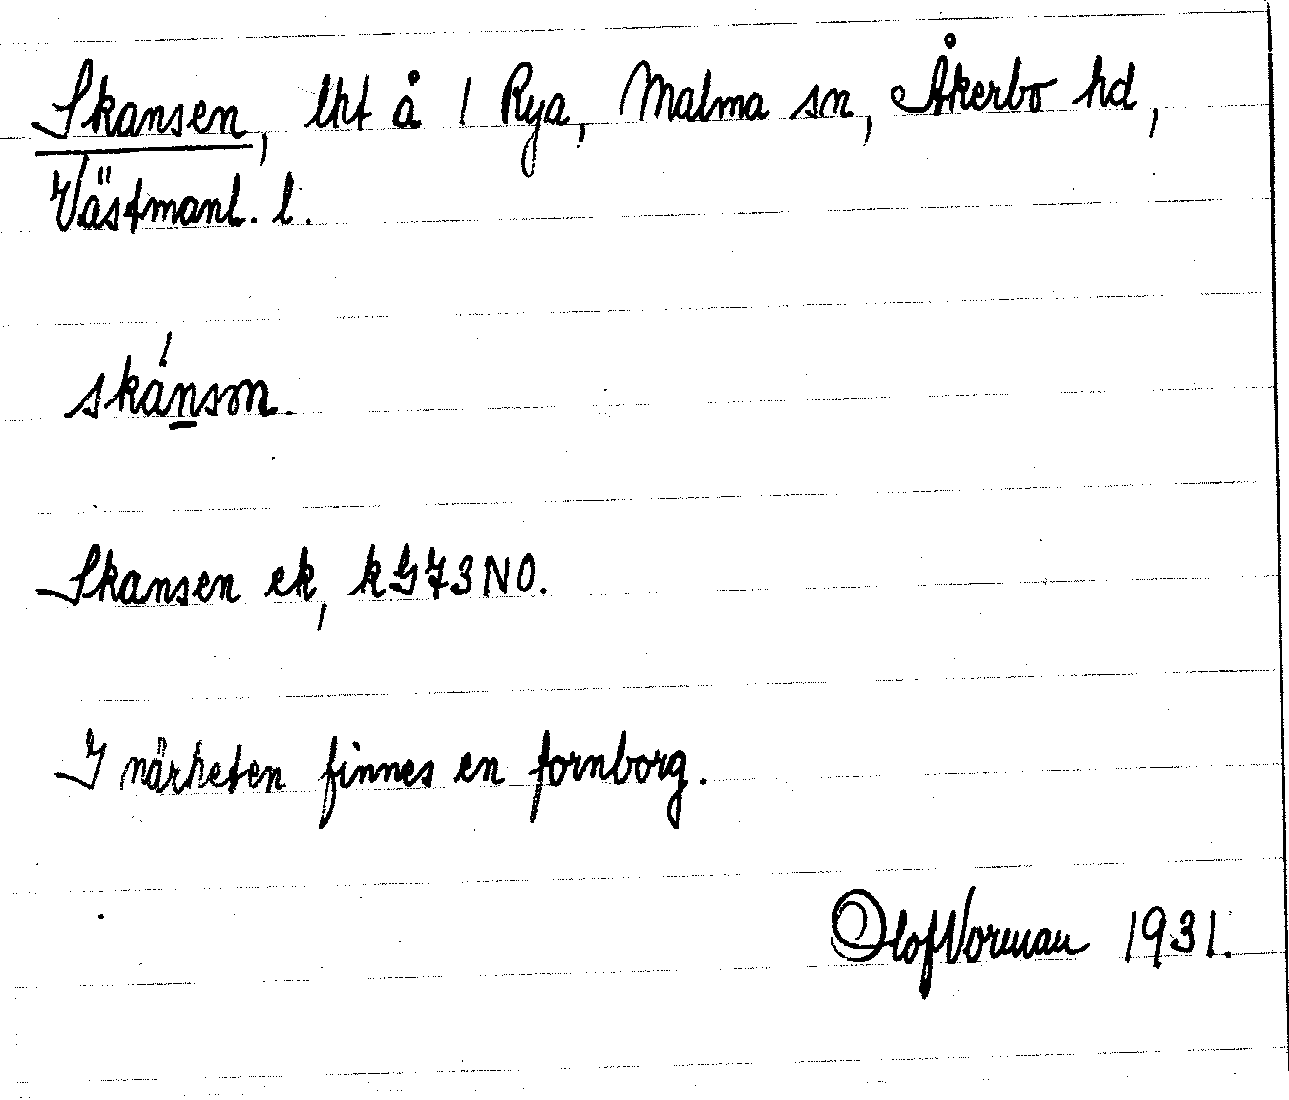 Skansen, lht å 1 Rya, Malma sn, Åkerbo hd,
Västmanl. l.
skánsm.
Skansen ek, kG73NO.
I närheten finnes en fornborg.
Olof Norman 1931.